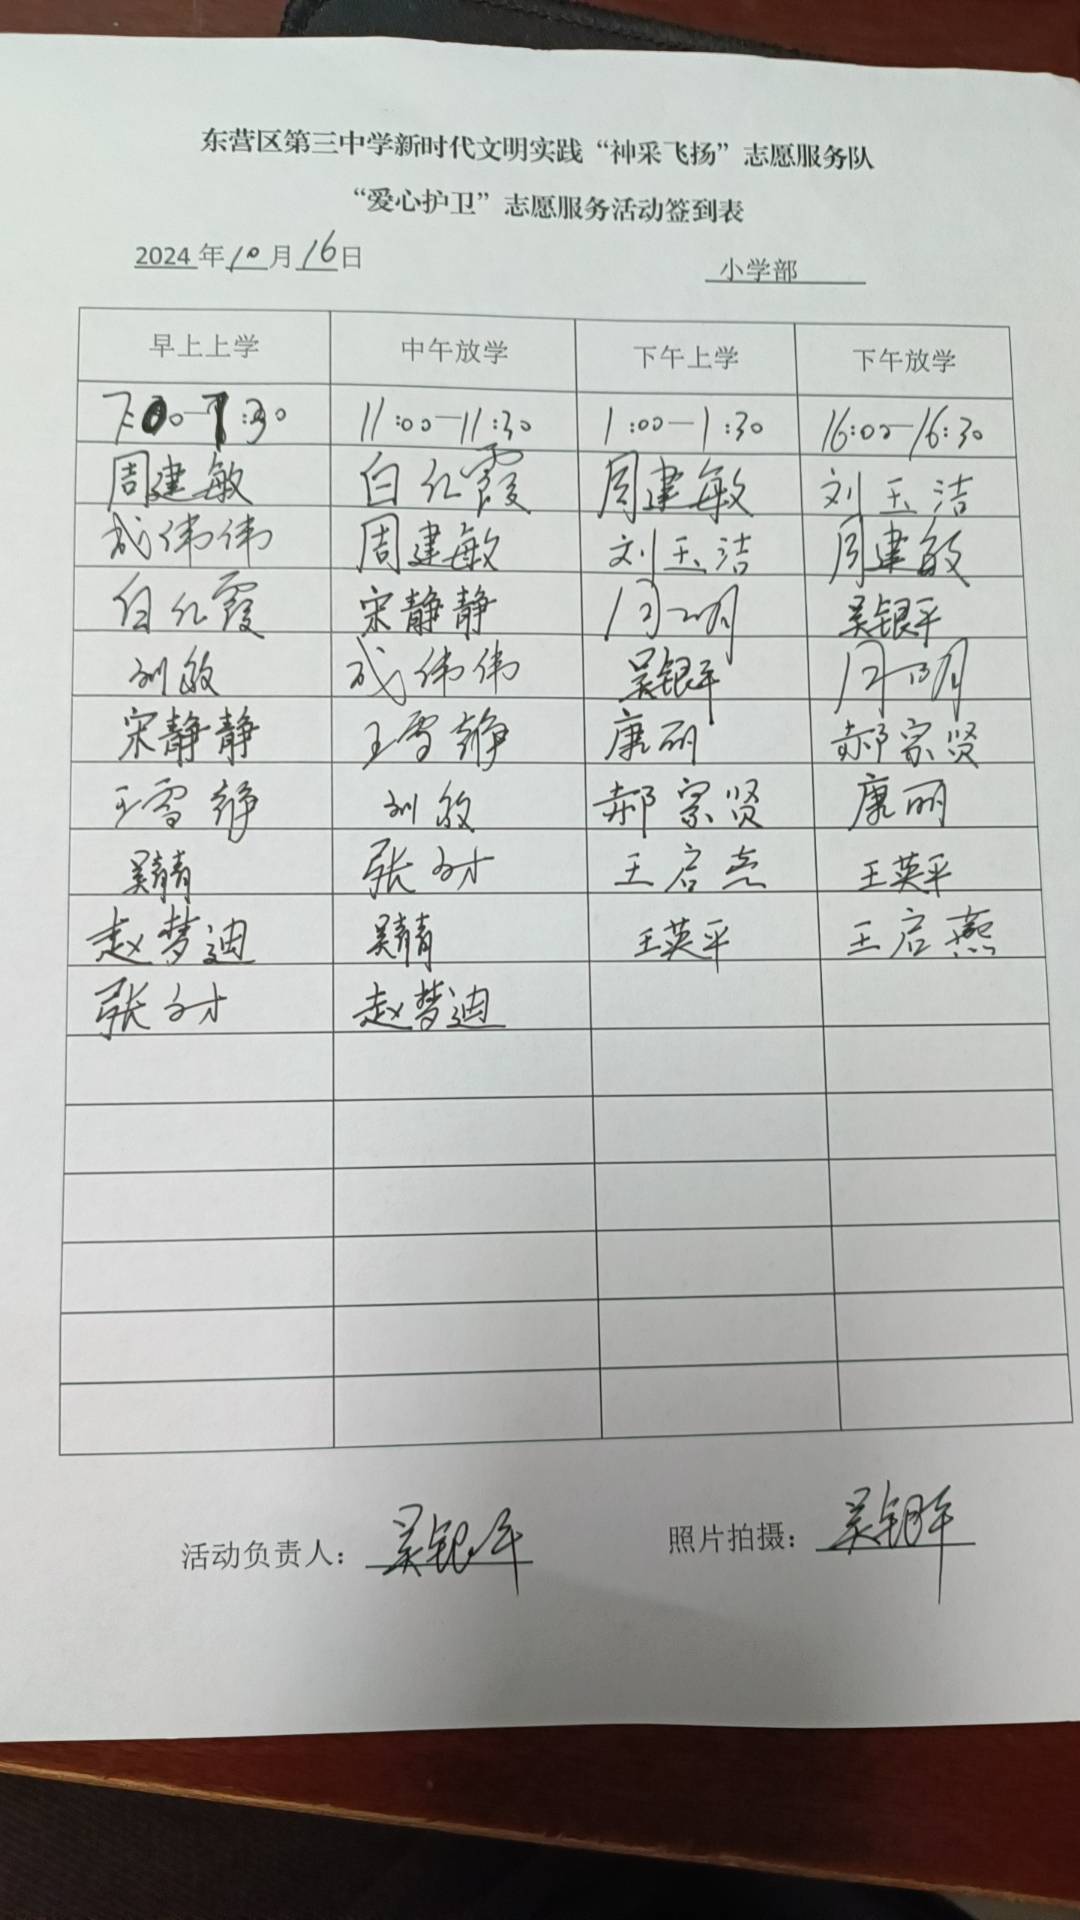 东营区第三中学新时代文明实践“神采飞扬”志愿服务队
“爱心护卫”志愿服务活动签到表
2024年10月16日 小学部
早上上学 中午放学 下午上学 下午放学
7:00-7:30 11:00-11:30 1:00-1:30 16:00-16:30
周建敏 白红霞 周建敏 刘玉洁
成伟伟 周建敏 刘玉洁 周建敏
白红霞 宋静静 吴银平
刘敏 成伟伟 吴银平
宋静静 王雪静 唐丽 郝宗贤
王雪静 刘敏 郝宗贤 唐丽
吴青青 张 王启燕 王英平
赵梦迪 吴青青 王英平 王启燕
张 赵梦迪
活动负责人：吴银平 照片拍摄：吴银平